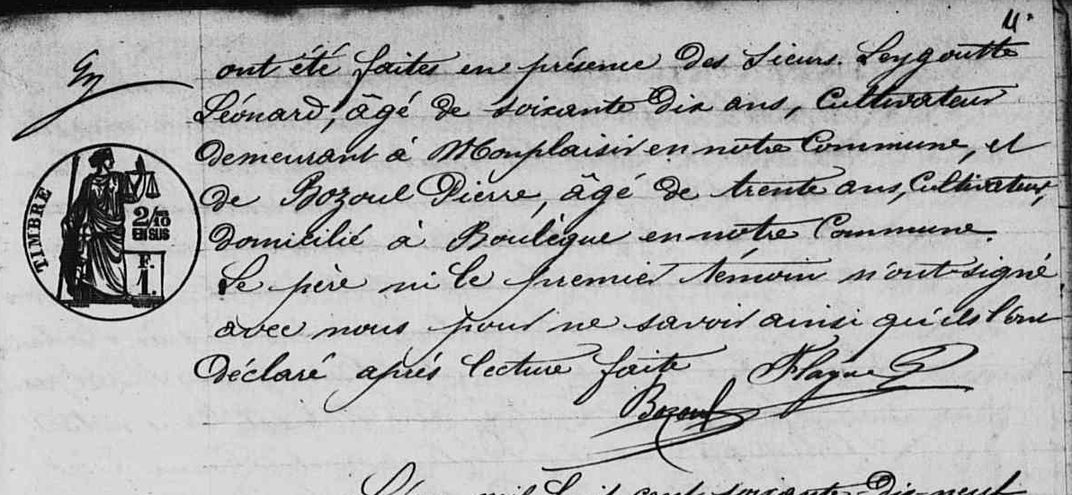 4.
ont été faites en présence des sieurs Leygoutte
Léonard, âgé de soixante dix ans, Cultivateur
demeurant à Monplaisir en notre Commune, et
de Bozoul Pierre, âgé de trente ans, Cultivateur,
domicilié à Boulègue en notre Commune.
Le père ni le premier témoin n'ont signé
avec nous pour ne savoir ainsi qu'ils l'ont
déclaré après lecture faite
Bozoul
TIMBRE
2/10
EN SUS
F.
1.
mil huit cent soixante-dix-neuf